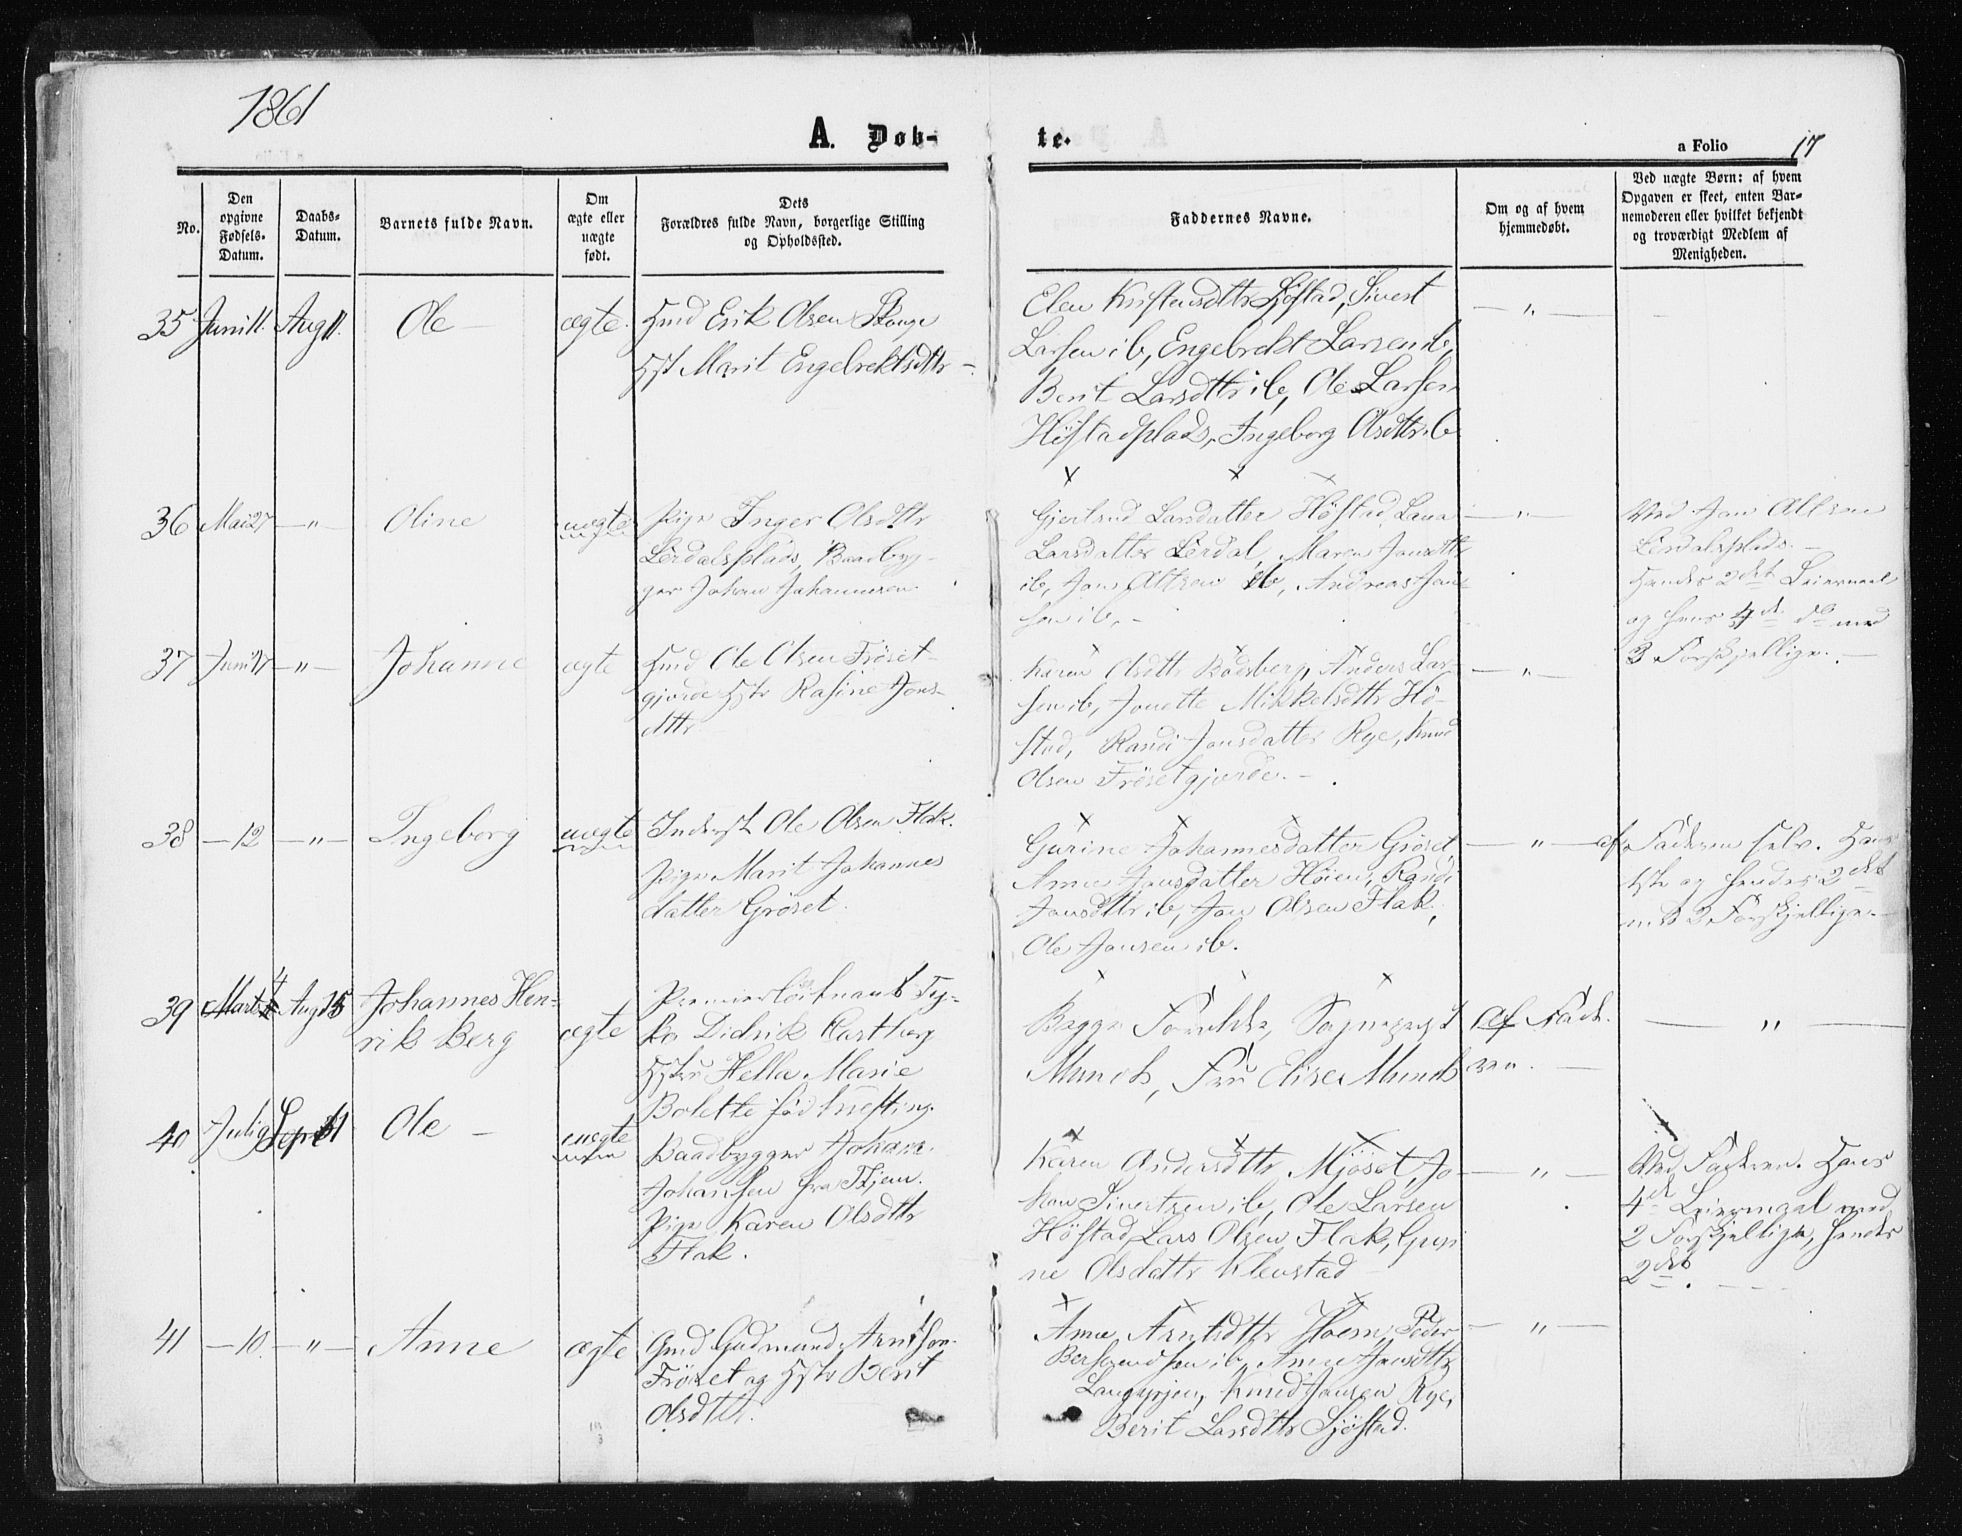 1861
A. Døb-
te.
a Folio 17
No.
Den
opgivne
Fødsels-
Datum.
Daabs-
Datum.
Barnets fulde Navn.
Om
ægte eller
uægte
født.
Dets
Forældres fulde Navn, borgerlige Stilling
og Opholdssted.
Faddernes Navne.
Om og af hvem
hjemmedøbt.
Ved uægte Børn: af hvem
Opgaven er skeet, enten Bar-
nemoderen eller hvilket bekjendt
og troværdigt Medlem af
Menigheden.
35 Juni 11. Aug 11. Ole - ægte.
Hmd Erik Olsen
Hst Marit Engebrektsdttr -
Elen Kristensdttr Sjøstad, Sivert
Larsen ib, Engebrekt Larsen ib,
Berit Larsdttr ib, Ole Larsen
Høstadplads, Ingeborg Olsdttr ib
- " -
36 Mai 27 - " - Oline uægte
Pige Inger Olsdttr
Lerdalsplads, Baadbyg-
ger Johan Johannesen
Gjertrud Larsdatter Høstad, Lava
Larsdatter Lerdal, Maren Jonsdttr
ib, Jon Altsen ib, Andreas Jon
sen ib. -
- " -
Ved Jon Altsen
Lerdalsplads. -
Hendes 2det Leiermaal
og hans 4de do med
3 Forskjellige. -
37 Juni 27 - " - Johanne ægte
Hmd Ole Olsen Frøset-
gjerde Hstr Rasine Jons-
dttr
Karen Olsdttr Bodsberg, Anders Lar-
sen ib, Jonette Mikkelsdttr Hø-
stad, Randi Jonsdatter Rye, Knud
Olsen Frøsetgjerde. -
- " -
38 - 12 - " - Ingeborg uægte
Inderst Ole Olsen Flak.
Pige Marit Johannes
datter Grøset.
Gurine Johannesdatter Grøset
Anne Jonsdatter Høien, Randi
Jonsdttr ib, Jon Olsen Flak,
Ole Jonsen ib.
- " -
af Faderen selv. Hans
1ste og hendes 2det
med 2 Forskjellige. -
39 Marts 4 Aug 15 Johannes Hen-
rik Berg ægte
Premierløitnant Ty-
ko Didrik Castberg
Hstru Hella Marie
Bolette fød Krefting.
Begge Forældre, Sogneprest
Munch, Fru Elise Munch
Af Fade
ren. -
- " -
40 Juli 9 Septb 1 Ole - uægte
Baadbygger Johan
Johansen fra
Pige Karen Olsdttr
Flak.
Karen Andersdttr Mjøset, Jo-
han Sivertsen ib, Ole Larsen
Høstad, Lars Olsen Flak, Guri
ne Olsdattr Klevstad -
- " -
Ved Faderen. Hans
4de Leiermaal med
2 Forskjellige, hendes
2det. -
41 - 10. - " - Anne ægte
Gmd Gudmund Arntsen
Frøset og Hstr Berit
Olsdttr.
Anne Arntsdttr Hoem, Peder
ib, Anne Jonsdttr
Knud Jonsen Rye,
Berit Larsdttr Sjøstad.
- " -